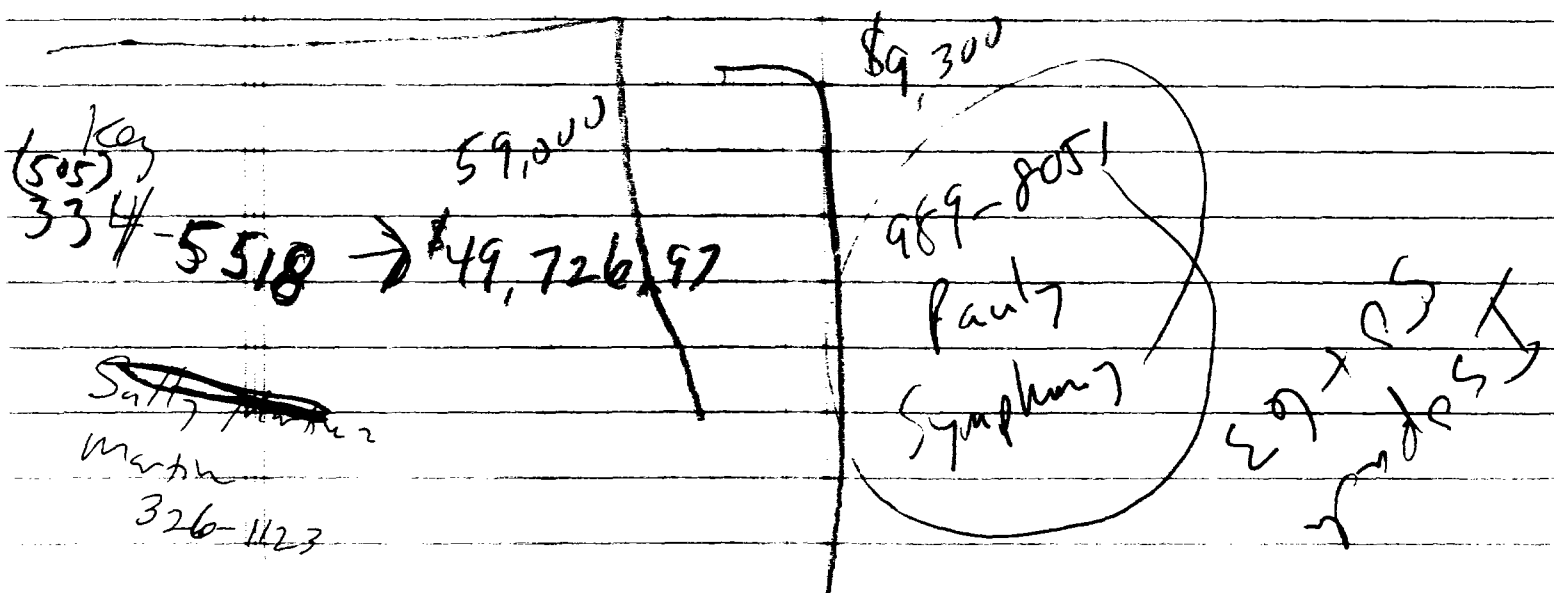 Key
(505)
334-5518 → $49,726.97
59,000
Martin
326-1123
$9,300
989-8051
Pauly
Symphony